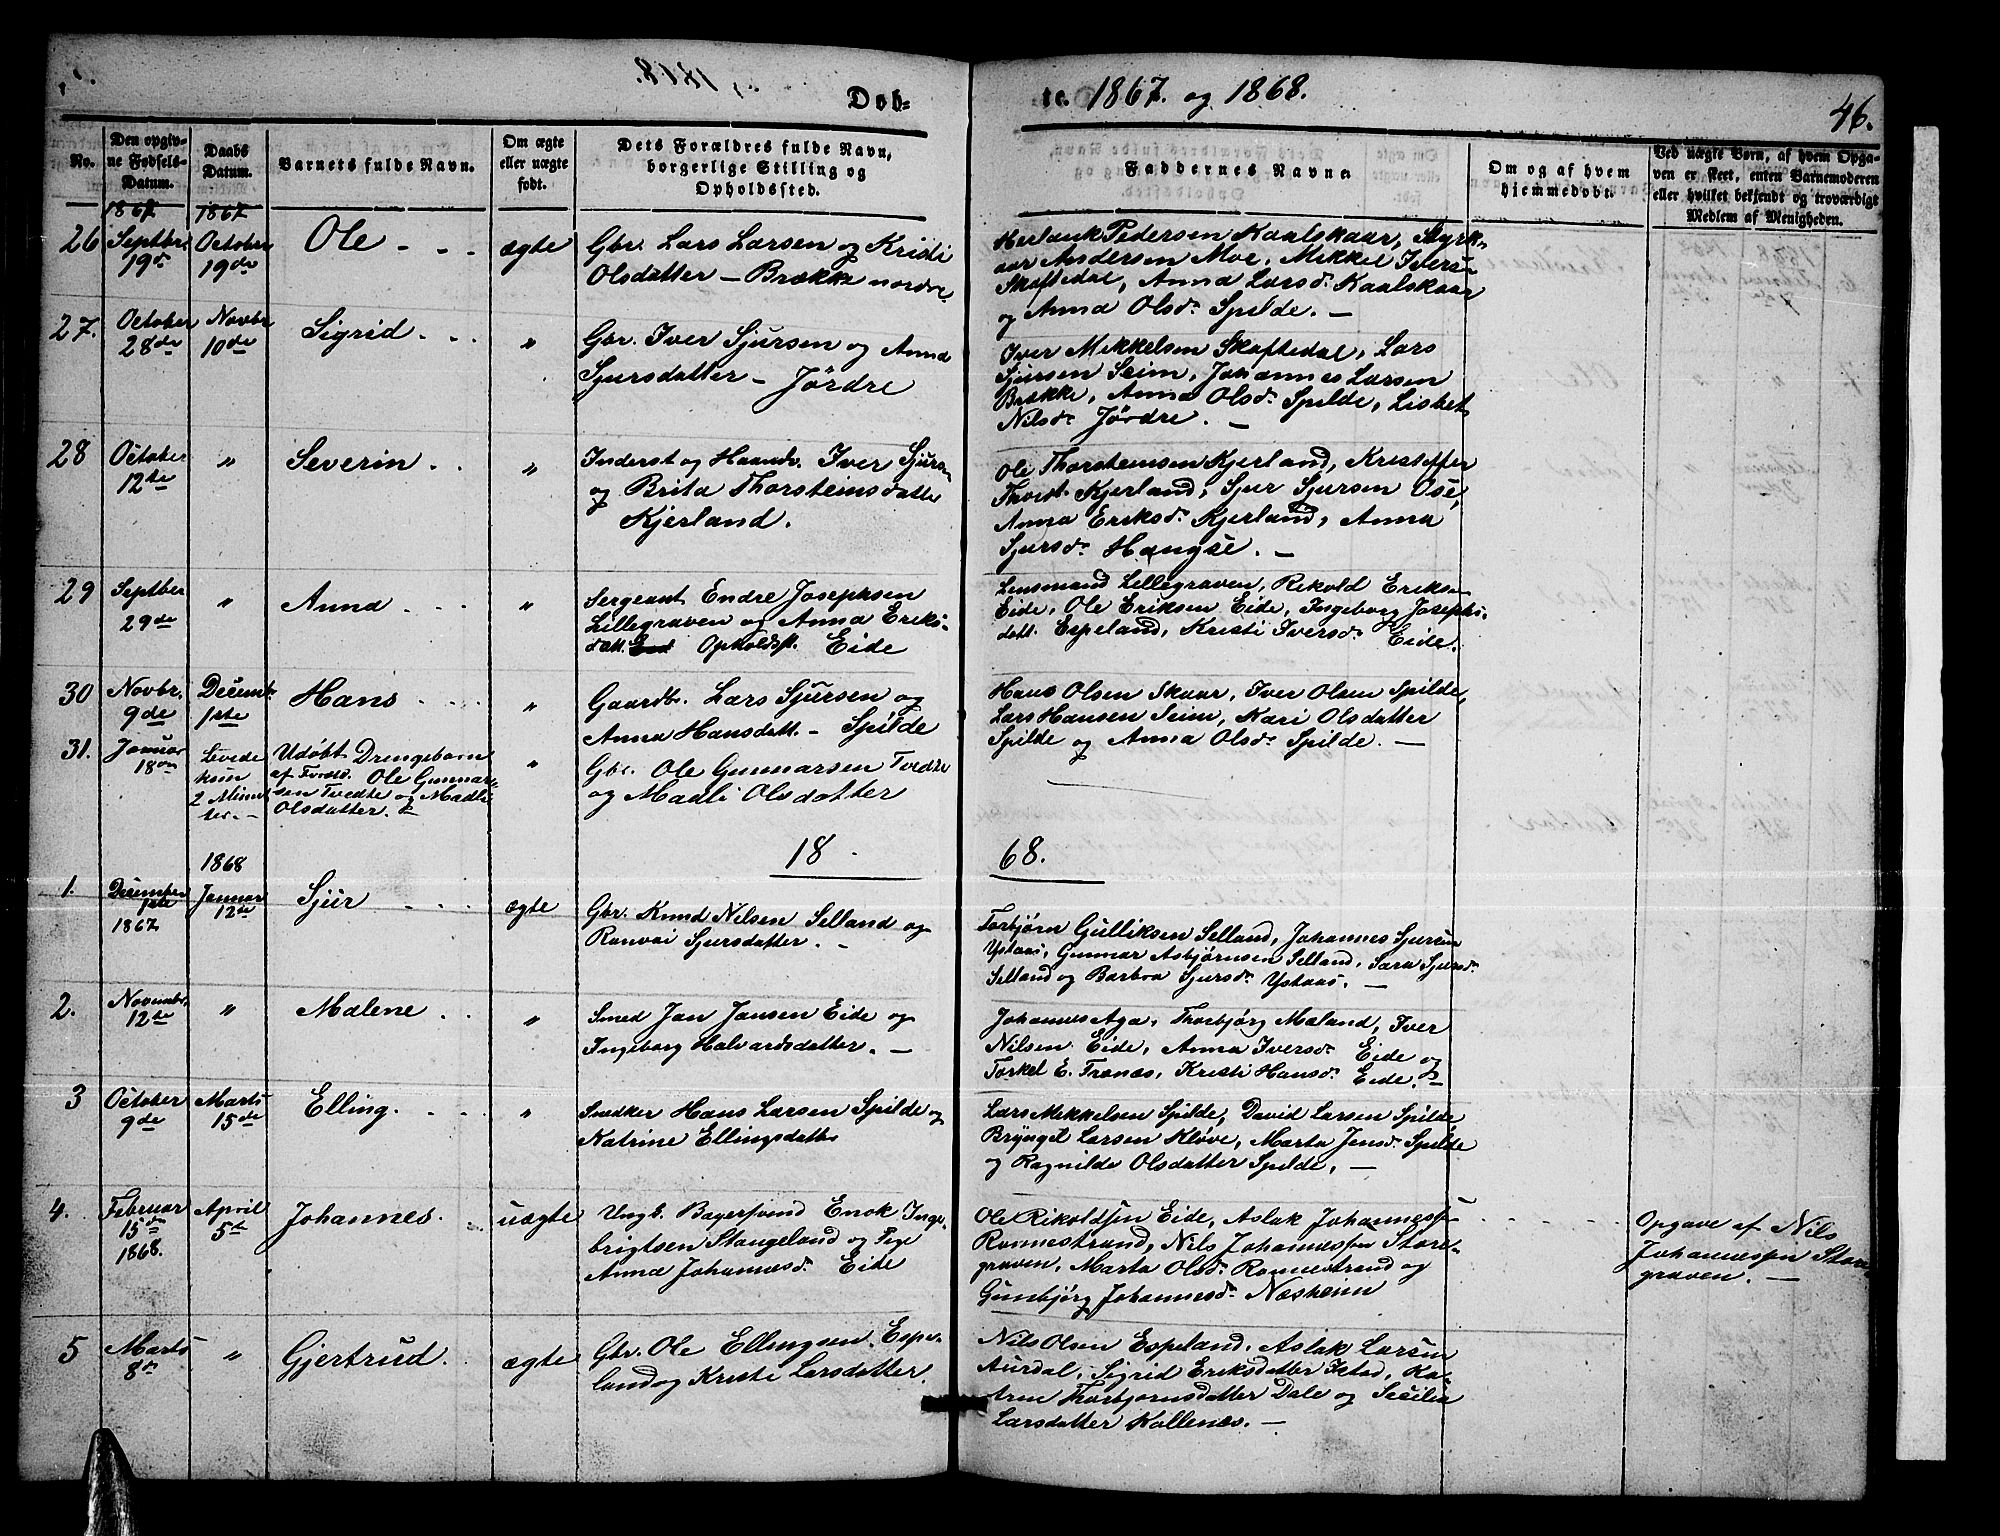 Døb-
te. 1867. og 1868.
46.
No.
Den opgiv-
ne Fødsels-
Datum.
Daabs
Datum.
Barnets fulde Navn.
Om ægte
eller uægte
født.
Dets Forældres fulde Navn,
borgerlige Stilling og
Opholdssted.
Faddernes Navne.
Om og af hvem
hjemmedøbt.
Ved uægte Børn, af hvem Opga-
ven er skeet, enten Barnemoderen
eller hvilket bekjendt og troværdigt
Medlem af Menigheden.
1867 1867
26 Septbr. 19de
October 19de
Ole
ægte
Gbr. Lars Larsen og Kristi
Olsdatter – Brække nordre
Pedersen Kaalskaar, Styrk-
aar Andersen Moe, Mikkel Iversen
Skaftedal, Anna Larsd. Kaalskaar
og Anna Olsd. Spilde. –
27. October 28de
Novbr. 10de
Sigrid
"
Gbr. Iver Sjursen og Anna
Sjursdatter – Jørdre
Iver Mikkelsen Skaftedal, Lars
Sjursen Seim, Johannes Larsen
Brække, Anna Olsd. Spilde, Lisbet
Nilsd. Jørdre. –
28 October 12te
"
Severin
"
Inderst og Haandv. Iver Sjurs.
og Brita Thorsteinsdatter
Kjerland.
Ole Thorsteinsen Kjerland, Kristoffer
Thorst. Kjerland, Sjur Sjursen Ose,
Anna Eriksd. Kjerland, Anna
Sjursd. Haugse. –
29 Septber 29de
"
Anna
"
Sergeant Endre Josephsen
Lillegraven og Anna Eriks-
datt. Opholdsst. Eide
Lensmand Lillegraven, Rikold Eriksen
Eide, Ole Eriksen Eide, Ingeborg Josephs-
datt. Espeland, Kristi Iversd. Eide.
30 Novbr. 9de
Decemb. 1ste
Hans
"
Gaardb. Lars Sjursen og
Anna Hansdatt. – Spilde
Hans Olsen Skaar, Iver Olsen Spilde,
Lars Hansen Seim, Kari Olsdatter
Spilde og Anna Olsd. Spilde. –
31. Januar 18de
Levede
kun
2 Minut-
ter. –
Udøbt Drengebarn
af Ole Gunnar-
sen Tvedte og Madli
Olsdatter.
"
Gbr. Ole Gunnarsen Tvedte
og Madli Olsdatter
18 68.
1. December 1ste 1867
1868 Januar 12de
Sjur
ægte
Gbr. Knud Nilsen Selland og
Ranvei Sjursdatter. –
Torbjørn Gulliksen Selland, Johannes Sjursen
Ystaas, Gunnar Asbjørnsen Selland, Sara Sjursd.
Selland og Barbra Sjursd. Ystaas. –
2. Novembr. 12te
"
Malene
"
Smed Jan Jansen Eide og
Ingeborg Halvardsdatter. –
Johannes Aga, Thorbjørg Mæland, Iver
Nilsen Eide, Anna Iversd. Eide og
Torkel E. Trænæs, Kristi Hansd. Eide.
3 October 9de
Marts 15de
Elling
"
Snedker Hans Larsen Spilde og
Katrine Ellingsdatter
Lars Mikkelsen Spilde, David Larsen Spilde,
Bryngel Larsen Kløve, Marta Jensd. Spilde
og Ragnilde Olsdatter Spilde. –
4. Februar 15de 1868.
April 5te
Johannes
uægte
Ungk. Bagersvend Enok Inge-
brigtsen Stangeland og Pige
Anna Johannesd. Eide
Ole Rikoldsen Eide, Aslak Johannessen
Ronnestrand, Nils Johannessen Store-
graven, Marta Olsd. Ronnestrand og
Gunbjørg Johannesd. Næsheim
Opgave af Nils
Johannessen Store-
graven. –
5 Marts 8de
"
Gjertrud
ægte
Gbr. Ole Ellingsen Espe-
land og Kristi Larsdatter.
Nils Olsen Espeland, Aslak Larsen
Aurdal, Sigrid Eriksdatter Istad, Ka-
trine Thorbjørnsdatter Dale og Secilia
Larsdatter Kollenæs. –